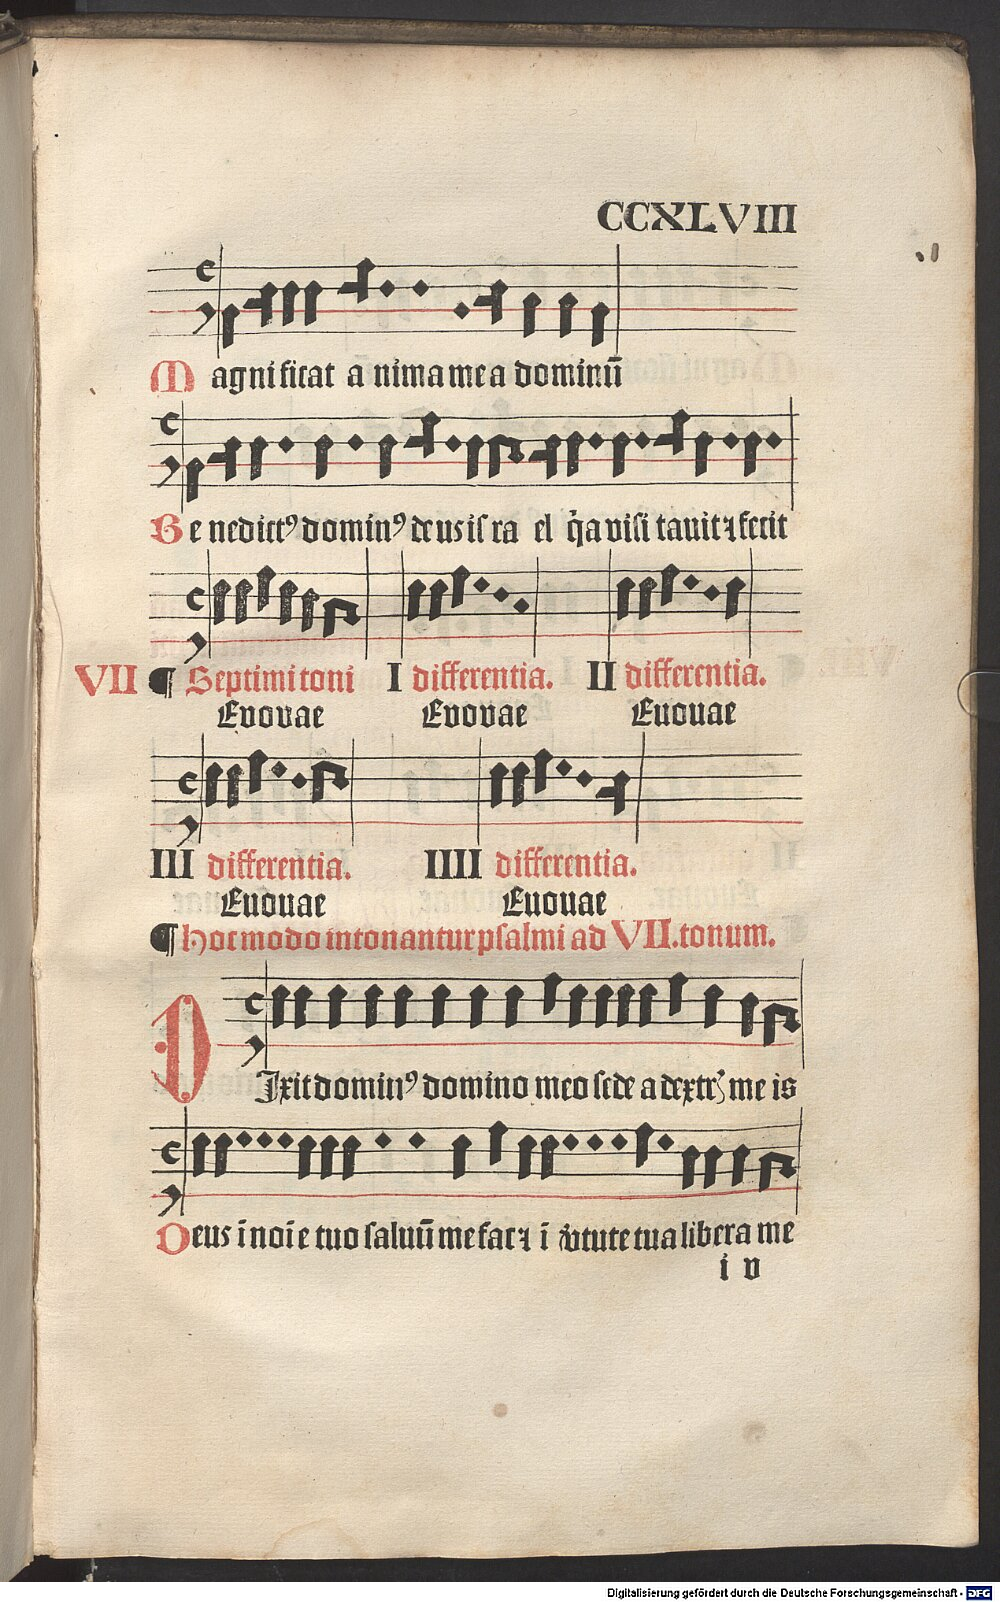 CCXLVIII
Magnificat anima mea dominū
Benedictꝰ dominꝰ deus isrrael q̄a visitauit ⁊ fecit
VII ¶ Septimi toni I differentia. II differentia.
Euouae Euouae Euouae
III differentia. IIII differentia.
Euouae Euouae
¶ Hoc modo intonantur psalmi ad VII. tonum.
DIxit dominꝰ domino meo sede a dextr̄ me is
Deus ī noīe tuo saluū me fac ⁊ ī v̄tute tua libera me
i v
Digitalisierung gefördert durch die Deutsche Forschungsgemeinschaft - DFG